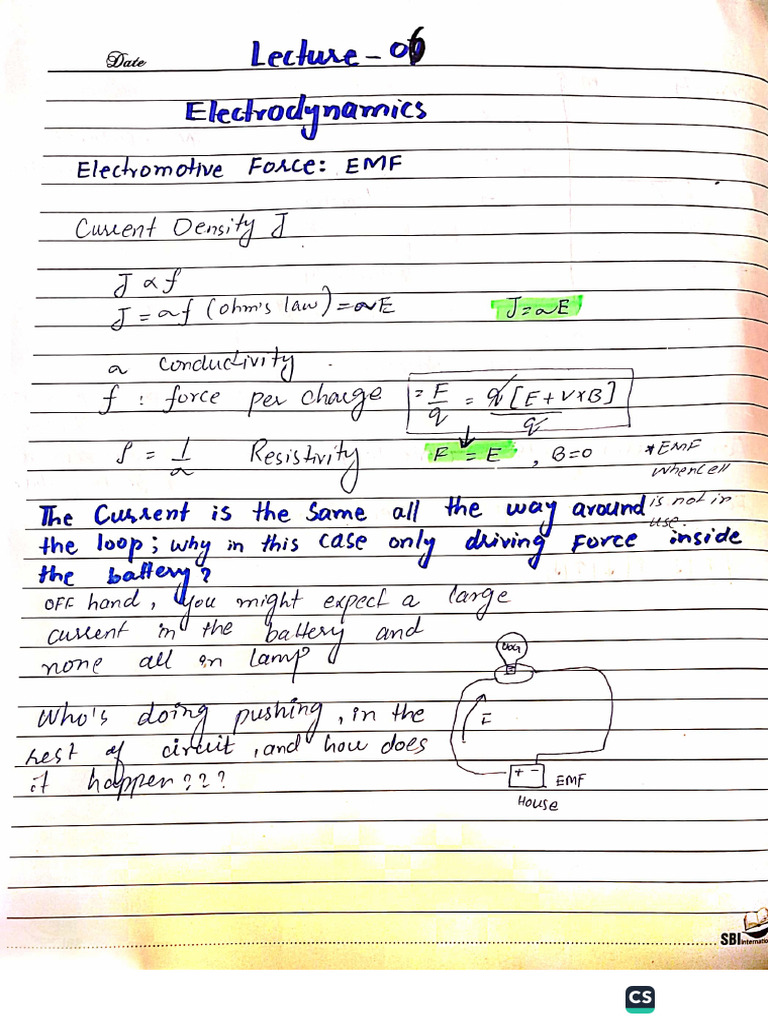 Date
Lecture - 06
Electrodynamics
Electromotive Force: EMF
Current Density J
J ∝ f
J = σf (ohm's law) = σE
J = σE
σ conductivity .
f : force per charge = F/q = q[E + V×B]/q
ρ = 1/σ Resistivity
F = E , B=0
*EMF
when cell
is not in
use.
The Current is the same all the way around
the loop; why in this case only driving force inside
the battery?
OFF hand, you might expect a large
current in the battery and
none all in lamp
Who's doing pushing, in the
rest of circuit, and how does
it happen???
I
+ -
EMF
House
SBI International
CS